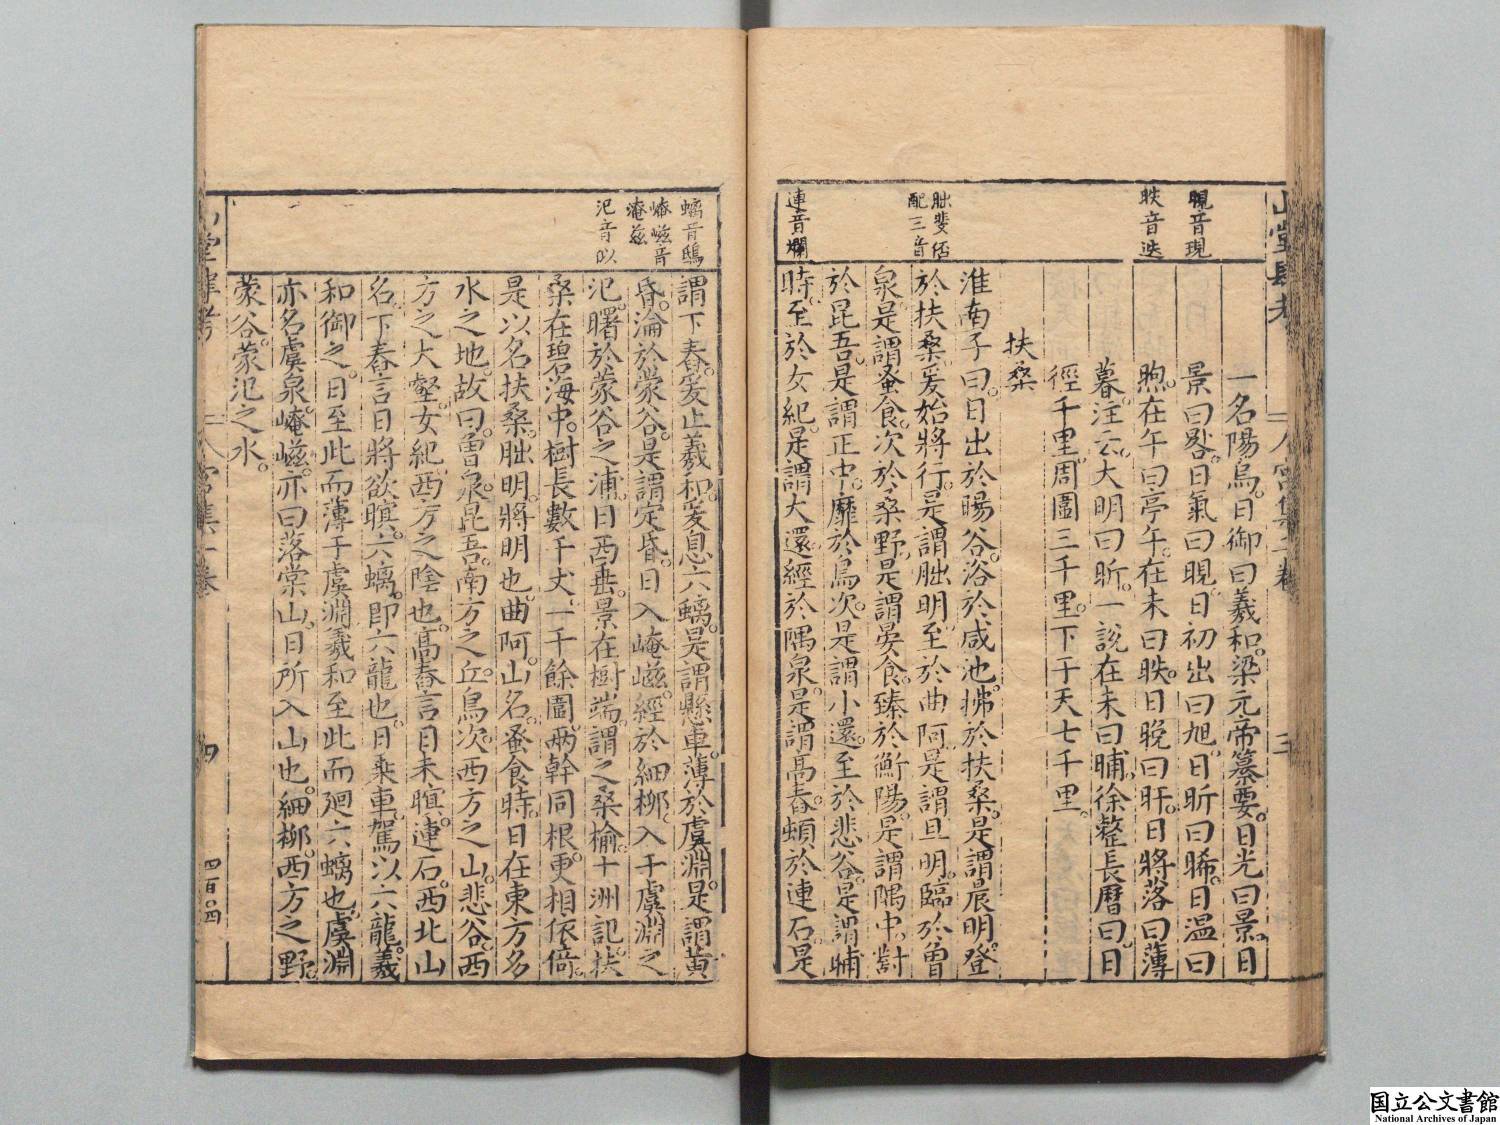 晛音現
昳音迭
一名陽烏。日御曰羲和。梁元帝纂要。日光曰景。日
景曰晷。日氣曰晛。日初出曰旭。日昕曰晞。日溫曰
煦。在午曰亭午。在未曰昳。日晚曰旰。日將落曰薄
暮。注云。大明曰昕。一說在未曰晡。徐整長曆曰。日
徑千里。周圍三千里。下于天七千里。
扶桑
朏斐
配三音
連音爛
淮南子曰。日出於暘谷。浴於咸池。拂於扶桑。是謂晨明。登
於扶桑。爰始將行。是謂朏明。至於曲阿。是謂旦明。臨於曾
泉。是謂蚤食。次於桑野。是謂晏食。臻於衡陽。是謂隅中。對
於昆吾。是謂正中。靡於鳥次。是謂小還。至於悲谷。是謂晡
時。至於女紀。是謂大還。經於隅泉。是謂高舂。頓於連石。是
螭音鴟
崦嵫音
淹兹
氾音似
謂下舂。爰止羲和。爰息六螭。是謂懸車。薄於虞淵。是謂黃
昏。淪於蒙谷。是謂定昏。日入崦嵫。經於細柳。入于虞淵之
氾。曙於蒙谷之浦。日西垂。景在樹端。謂之桑榆。十洲記。扶
桑在碧海中。樹長數千丈。一千餘圍。兩幹同根。更相依倚。
是以名扶桑。朏明。將明也。曲阿。山名。蚤食時。日在東方多
水之地。故曰曾泉。昆吾。南方之丘。鳥次。西方之山。悲谷。西
方之大壑。女紀。西方之陰也。高舂言日未暝。連石。西北山
名。下舂言日將欲暝。六螭。即六龍也。日乘車。駕以六龍。羲
和御之。日至此而薄于虞淵。羲和至此而廻六螭也。虞淵
亦名虞泉。崦嵫。亦曰落棠山。日所入山也。細柳。西方之野。
蒙谷。蒙氾之水。
四
四百四
国立公文書館
National Archives of Japan